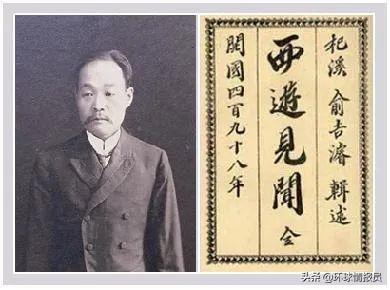 杞溪 俞吉濬 輯述
西遊見聞 全
開國四百九十八年
头条 @环球情报员